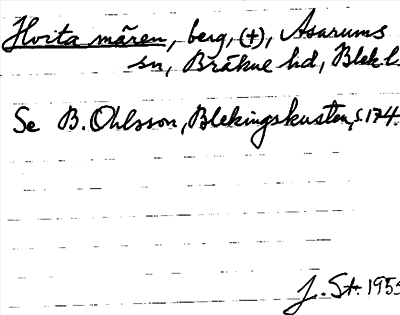 Hvita mären, berg, (+), Asarums
sn, Bräkne hd, Blek l.
Se B. Ohlsson, Blekingskusten, s. 174.
J. St. 1955